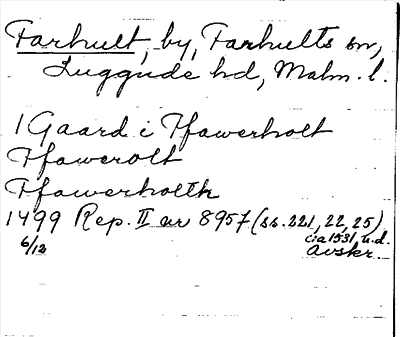 Farhult, by, Farhults sn,
Luggude hd, Malm. l.
1 Gaard i Ffawerholt
Ffawerolt
Ffawerholtk
1499 Rep. II nr 8957 (ss. 221, 22, 25)
6/12 ca 1531, u.d.
Avskr.